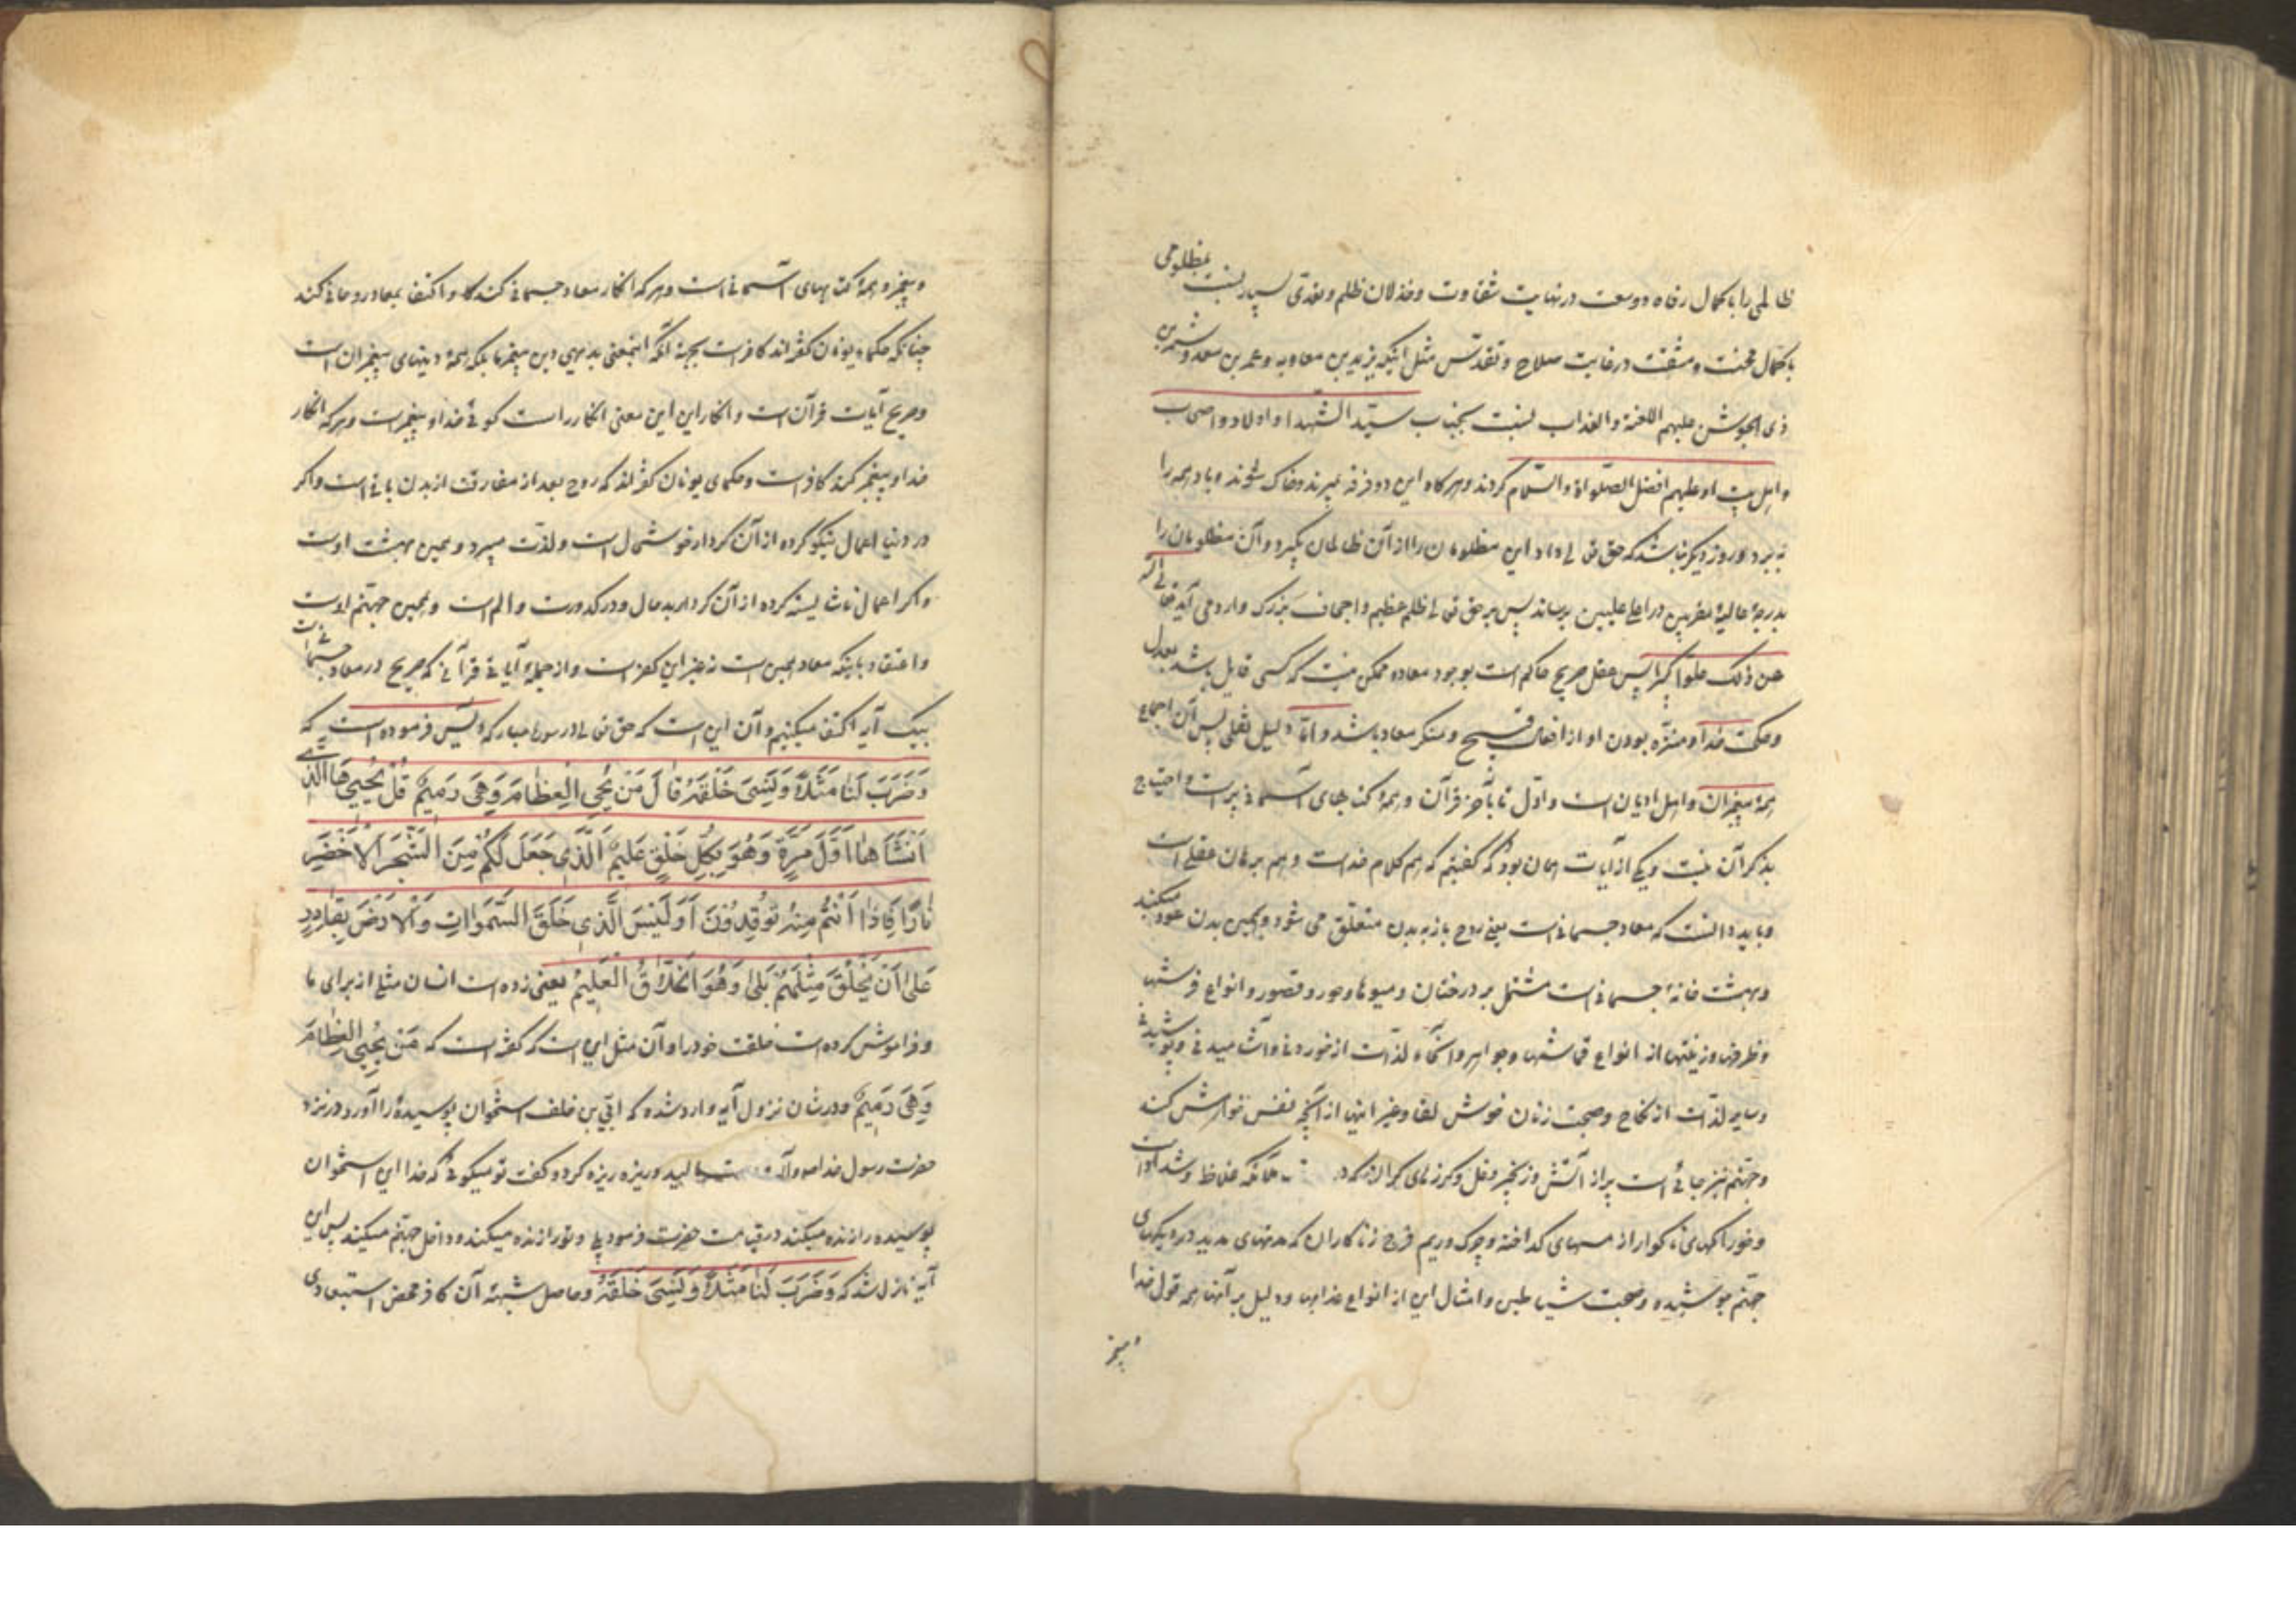 ظالمی را با کمال رفاه و وسعت در نهایت شقاوت و خذلان ظلم و تعدی بسیار نسبت بمظلومی
با کمال محنت و مشقت در غایت صلاح و تقدّس مثل اینکه یزید بن معاویه و عمر بن سعد و شمر بن
ذی الجوشن علیهم اللعنة والعذاب نسبت بجناب سیّد الشّهدا و اولاد و اصحاب
و اهل بیت او علیهم افضل الصّلواة والسّلام کردند و هرگاه این دو فرقه بمیرند و خاک شوند و باد همه را
ببرد و روز دیگر نباشد که حق تعالی داد این مظلومان را از آن ظالمان بگیرد و آن مظلومان را
بدرجهٔ عالیهٔ مقربین در اعلی علیین برساند پس بر حق تعالی ظلم عظیم و اجحاف بزرگ وارد می آید تعالی الله
عن ذلک علوّا کبیرا پس عقل صریح حاکم است بوجود معاد و ممکن نیست که کسی قایل باشد بعدل
و حکمت خدا و منزّه بودن او از افعال قبیح و منکر معاد باشد و امّا دلیل نقلی پس آن اجماع
همهٔ پیغمبران و اهل ادیان است و اوّل تا بآخر قرآن و همهٔ کتابهای آسمانی پر است و احتیاج
بذکر آن نیست و یکی از آیات همان بود که گفتیم که هم کلام خداست و هم برهان عقلی است
و باید دانست که معاد جسمانی است یعنی روح باز به بدن متعلّق می شود و بهمین بدن عود میکند
و بهشت خانهٔ جسمانی است مشتمل بر درختان و میوها و حور و قصور و انواع فرشها
و ظرفها و زینتها از انواع قماشها و جواهر و انحاء لذّات از خوردنی و آشامیدنی و پوشیدنی
و سایر لذّات از نکاح و صحبت زنان خوش لقا و غیر اینها از آنچه نفس خواهش کند
و جهنّم نیز جائی است پر از آتش و زنجیر و غل و گرزهای گران ملائکه غلاظ و شداد
و خوراکهای ناگوار از مسهای گداخته و چرک و ریم فرج زناکاران که مدتهای مدید در دیگهای
جهنّم جوشیده و صحبت شیاطین و امثال این از انواع عذابها و دلیل بر آنها همه قول خدا
و پیغمبر
و پیغمبر و همهٔ کتابهای آسمانی است و هر که انکار معاد جسمانی کند و اکتفا بمعاد روحانی کند
چنانکه حکماء یونان گفته‌اند کافر است بجهة آنکه اینمعنی بدیهی دین پیغمبر ما بلکه همهٔ دینهای پیغمبران است
و صریح آیات قرآن است و انکار این این معنی انکار راست گوئی خدا و پیغمبر است و هر که انکار
خدا و پیغمبر کند کافر است و حکمای یونان گفته‌اند که روح بعد از مفارقت از بدن باقی است و اگر
در دنیا اعمال نیکو کرده از آن کردار خوشحال است و لذّت میبرد و همین بهشت اوست
و اگر اعمال ناشایسته کرده از آن کردار بدحال و در کدورت و الم است و همین جهنّم اوست
و اعتقاد باینکه معاد همین است نه غیر این کفر است و از جملهٔ آیاتی قرآنی که صریح در معاد جسمانی است
بیک آیه اکتفا میکنیم و آن این است که حق تعالی در سورهٔ مبارکه یس فرموده است که
وَضَرَبَ لَنَا مَثَلًا وَنَسِیَ خَلْقَهُ قَالَ مَنْ یُحْیِ الْعِظَامَ وَهِیَ رَمِیمٌ قُلْ یُحْیِیهَا الَّذِی
اَنْشَأَهَا اَوَّلَ مَرَّةٍ وَهُوَ بِکُلِّ خَلْقٍ عَلِیمٌ اَلَّذِی جَعَلَ لَکُمْ مِنَ الشَّجَرِ الْاَخْضَرِ
نَارًا فَاِذَا اَنْتُمْ مِنْهُ تُوقِدُونَ اَوَلَیْسَ الَّذِی خَلَقَ السَّمَوَاتِ وَالْاَرْضَ بِقَادِرٍ
عَلَی اَنْ یَخْلُقَ مِثْلَهُمْ بَلَی وَهُوَ الْخَلَّاقُ الْعَلِیمُ یعنی زده است انسان مثلی از برای ما
و فراموش کرده است خلقت خود را و آن مثل این است که گفته است که مَنْ یُحْیِی الْعِظَامَ
وَهِیَ رَمِیمٌ و در شان نزول آیه وارد شده که ابیّ بن خلف استخوان پوسیدهٔ را آورد در نزد
حضرت رسول خدا و مالید و ریزه ریزه کرد و گفت تو میگوئی که خدا این استخوان
پوسیده را زنده میکند در قیامت حضرت فرمود بلی و تو را زنده میکند و داخل جهنّم میکند پس این
آیه نازل شد که وَضَرَبَ لَنَا مَثَلًا وَنَسِیَ خَلْقَهُ و حاصل شبههٔ آن کافر محض استبعادی